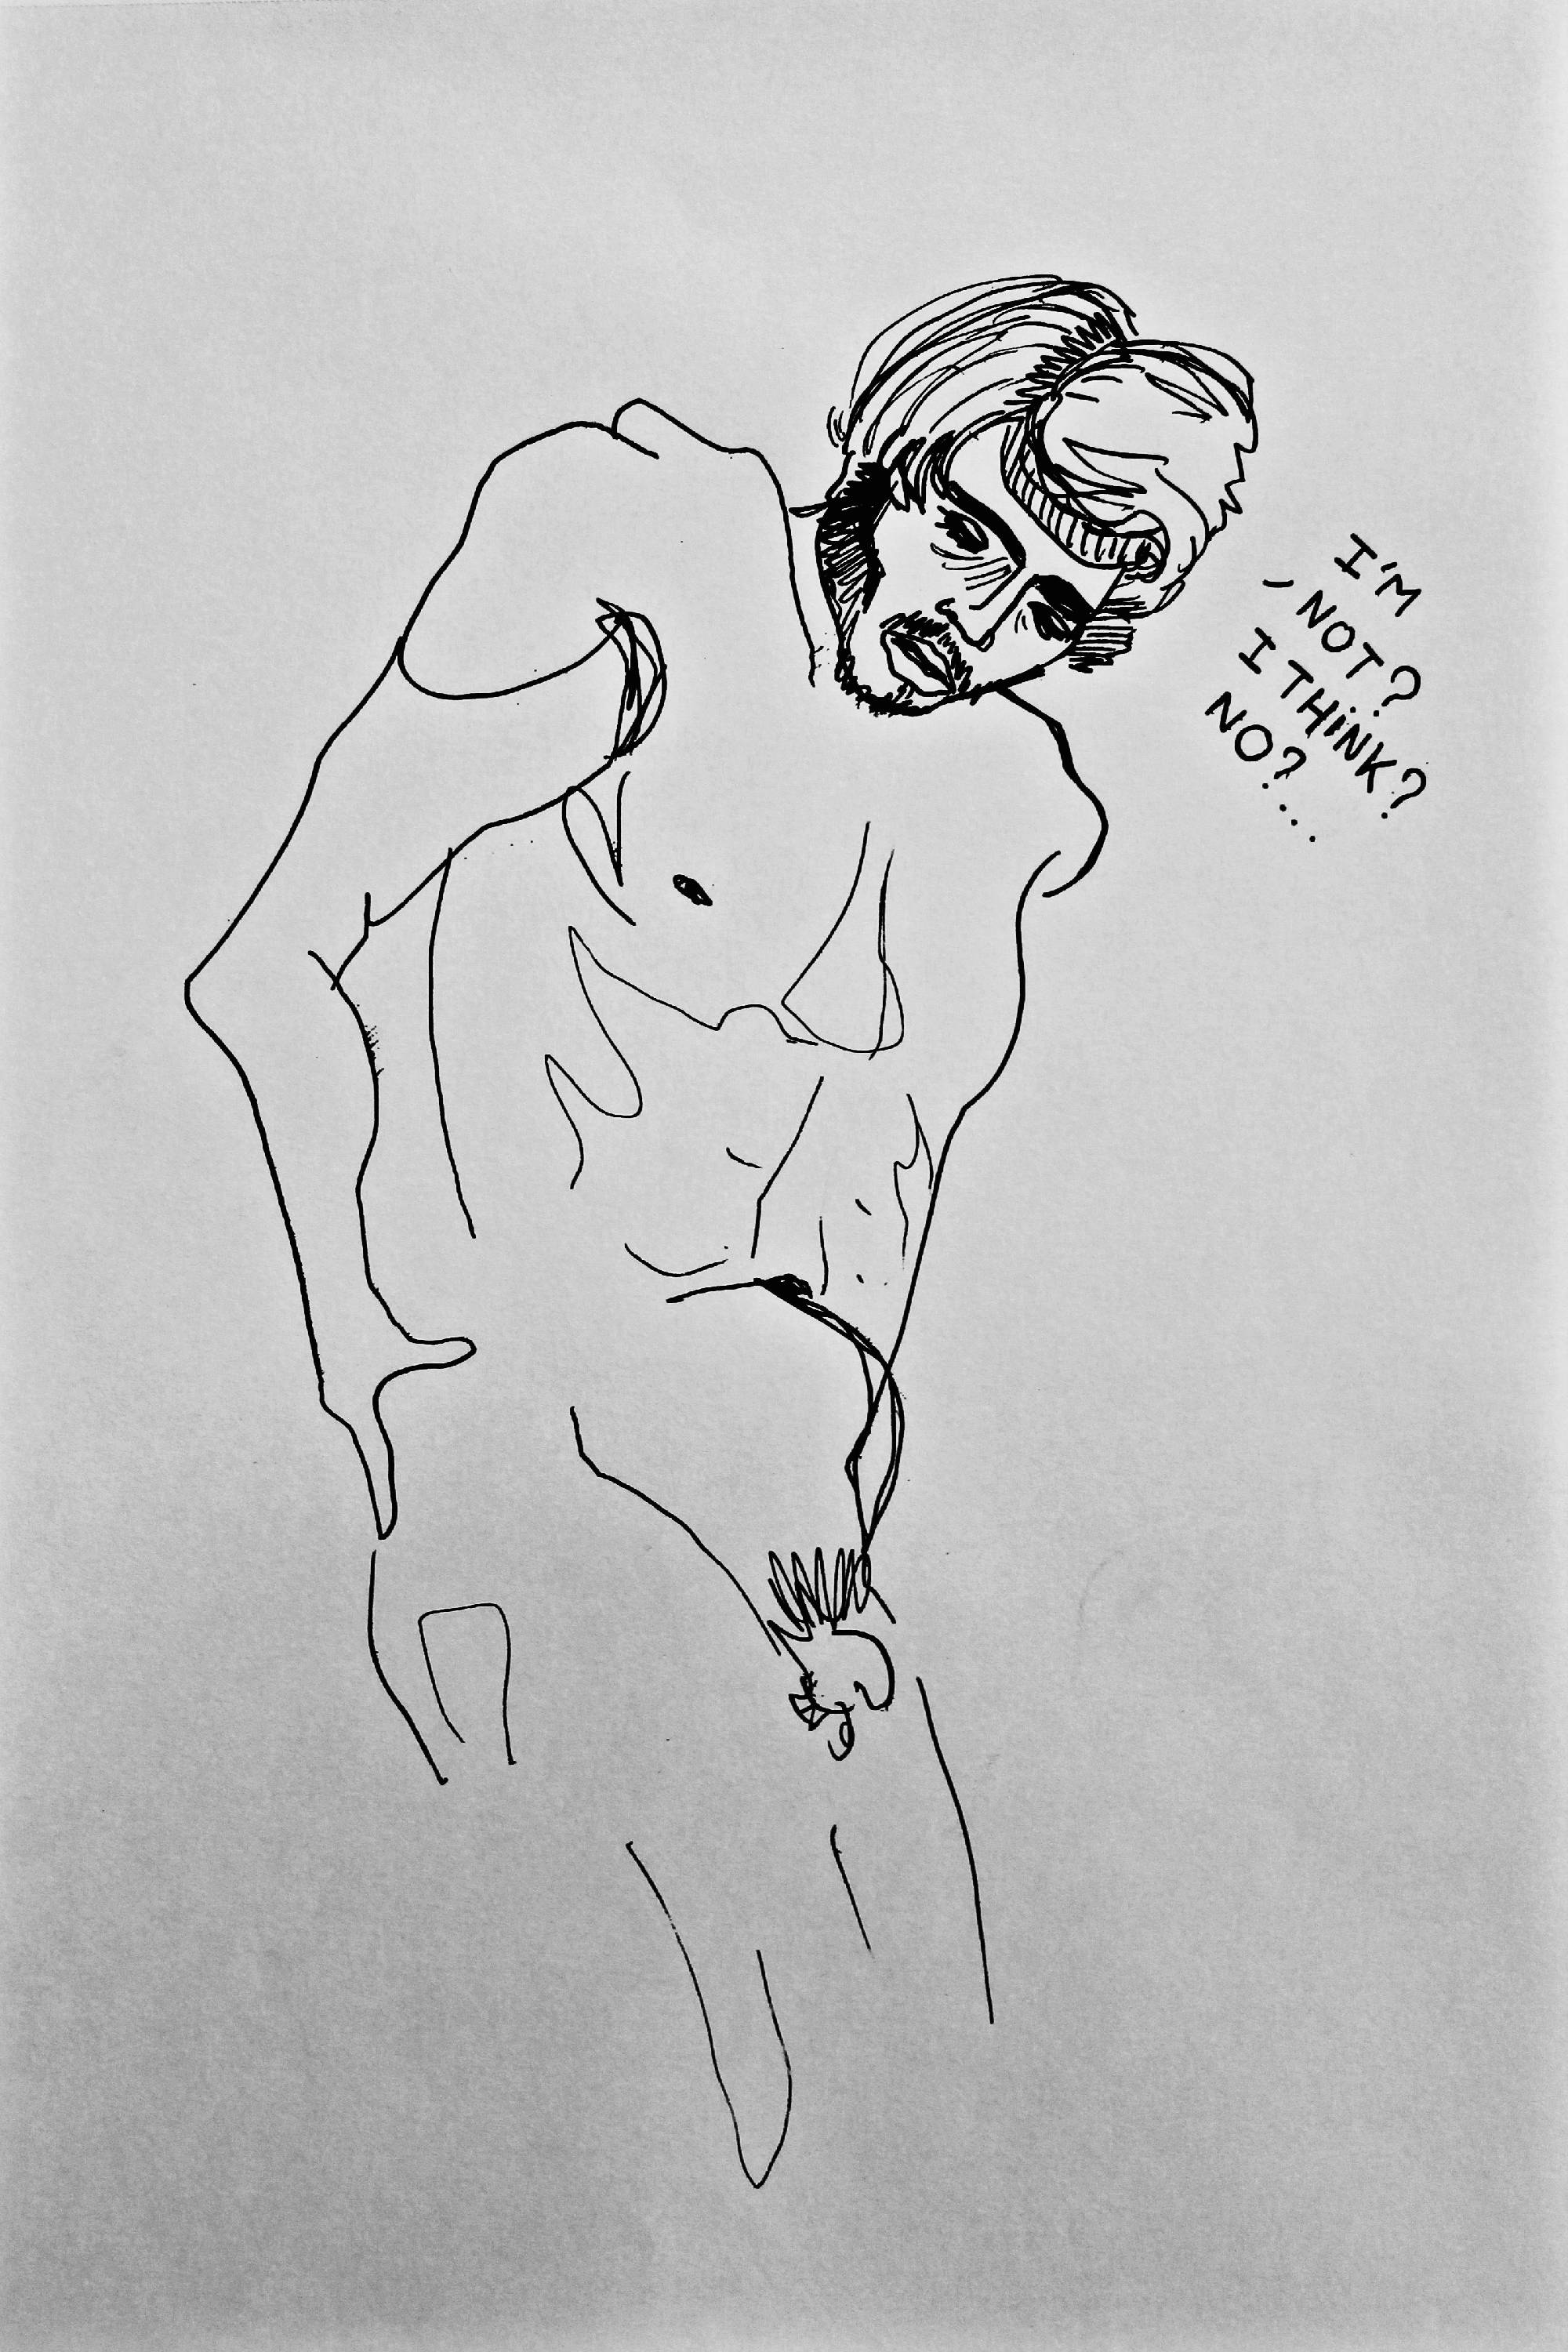 I'M
- NOT?
I THiNK?
NO?...